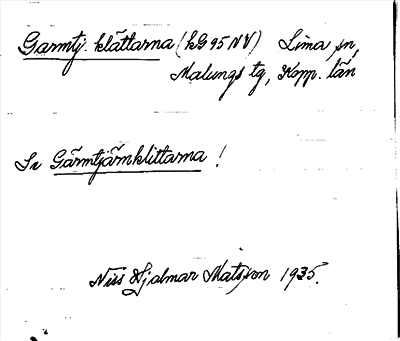 Garmtj. klättarna (kG 95 NV) Lima sn,
Malungs tg, Kopp. län
Se Gärmtjärnklittarna !
Niss Hjalmar Matsson 1935.